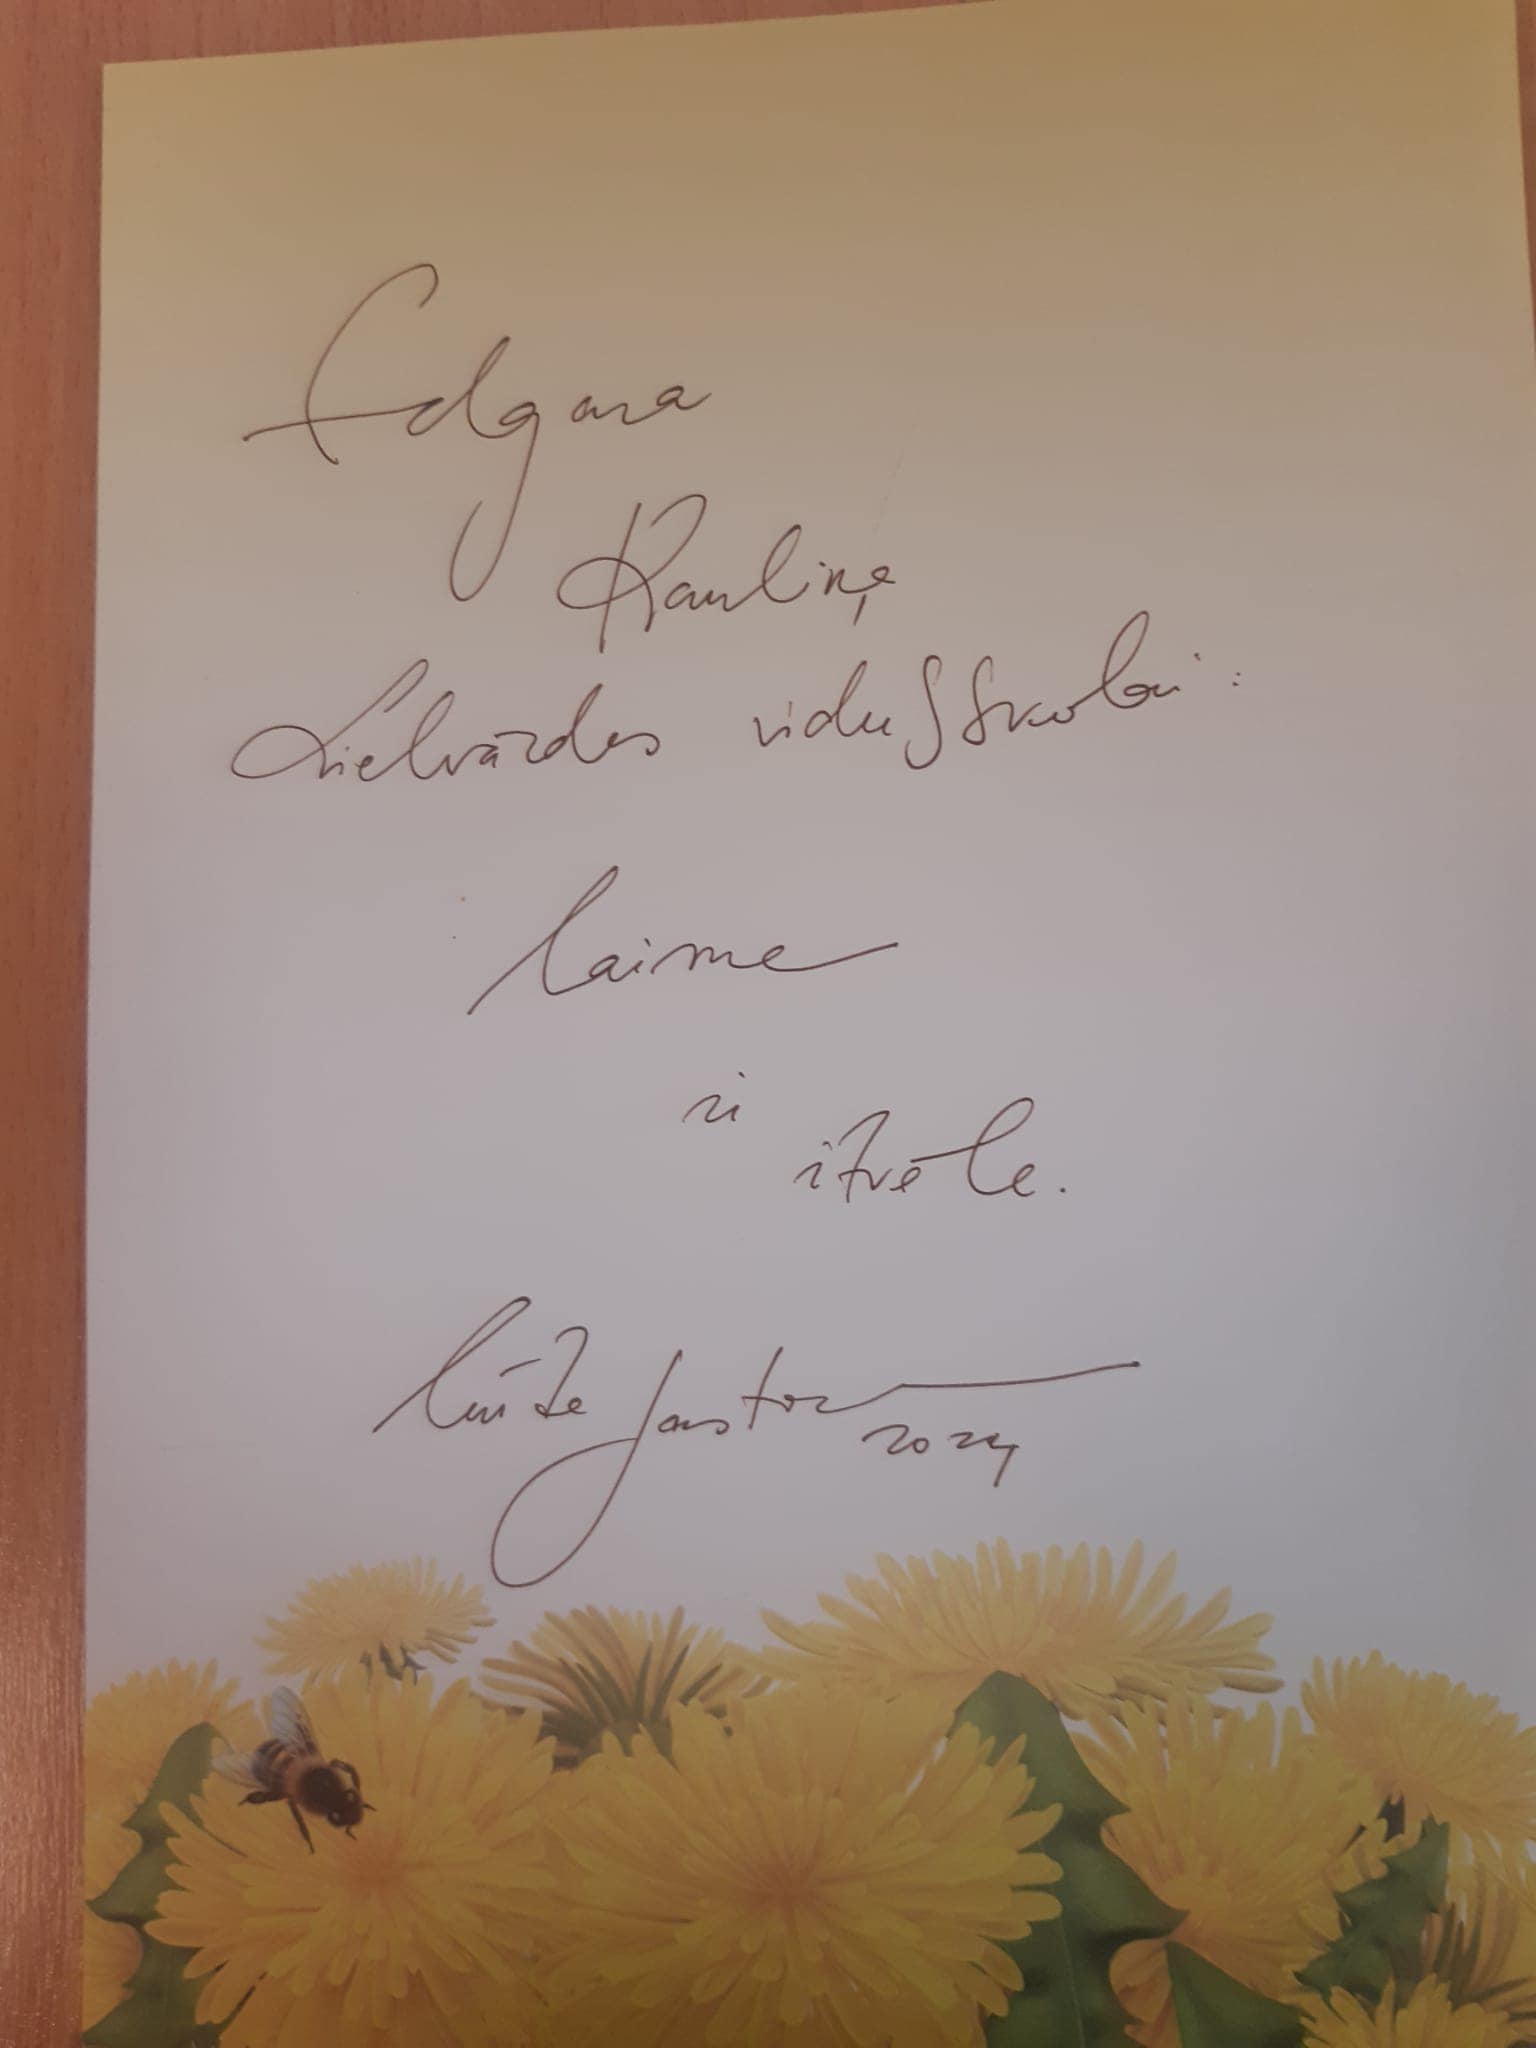 Edgara
Kauliņa
Lielvārdes vidusskolai:
laime
ir
izvēle.
2024